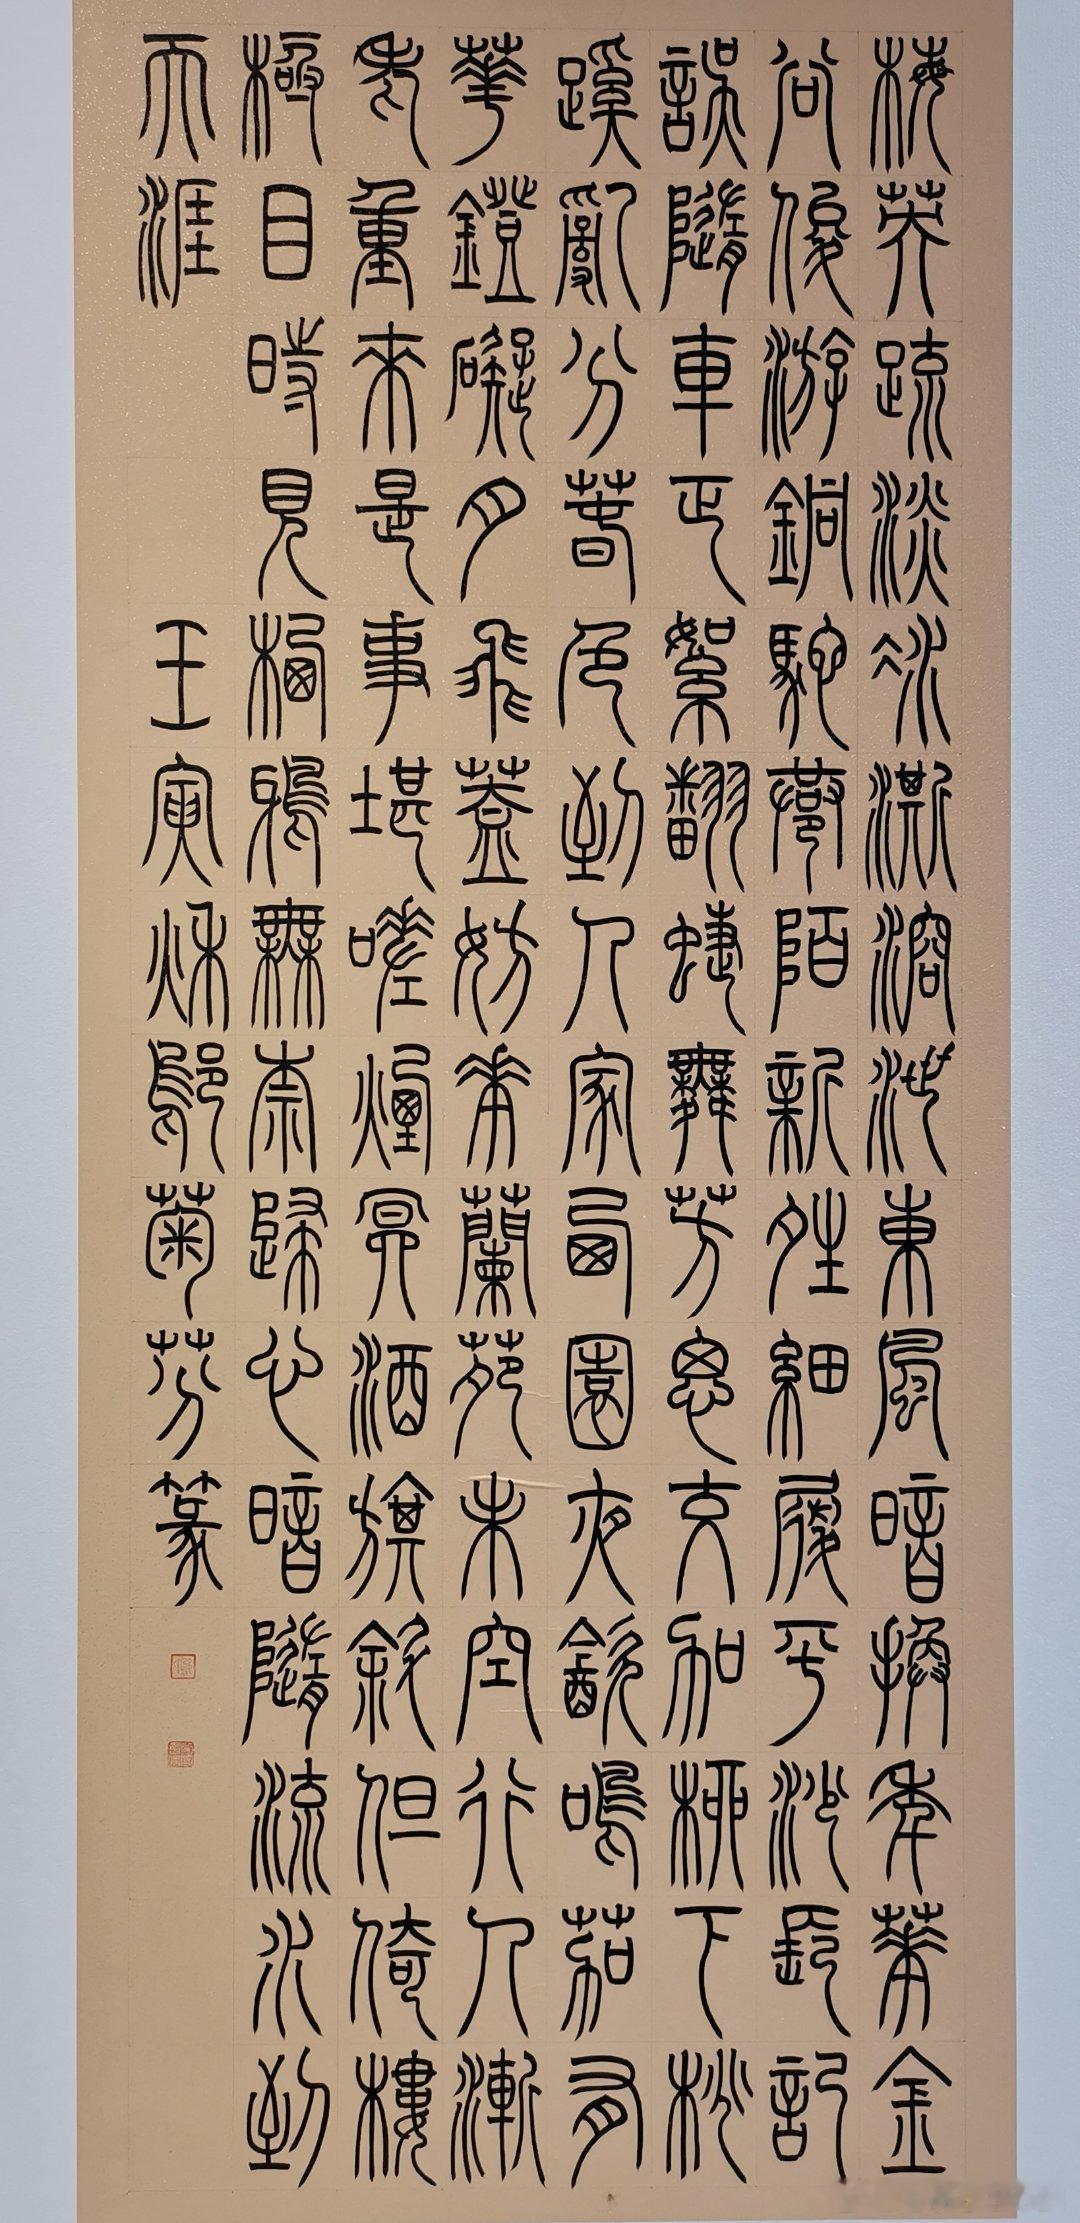 梅英疏淡冰澌溶泄東風暗換年華金
谷俊游銅駝巷陌新晴細履平沙長記
誤隨車正絮翻蝶舞芳思交加柳下桃
蹊亂分春色到人家西園夜飲鳴笳有
華鐙礙月飛蓋妨華蘭苑未空行人漸
老重來是事堪嗟煙冥酒旗斜但倚樓
極目時見棲鴉無奈歸心暗隨流水到
天涯
壬寅秋鄔菊芬篆